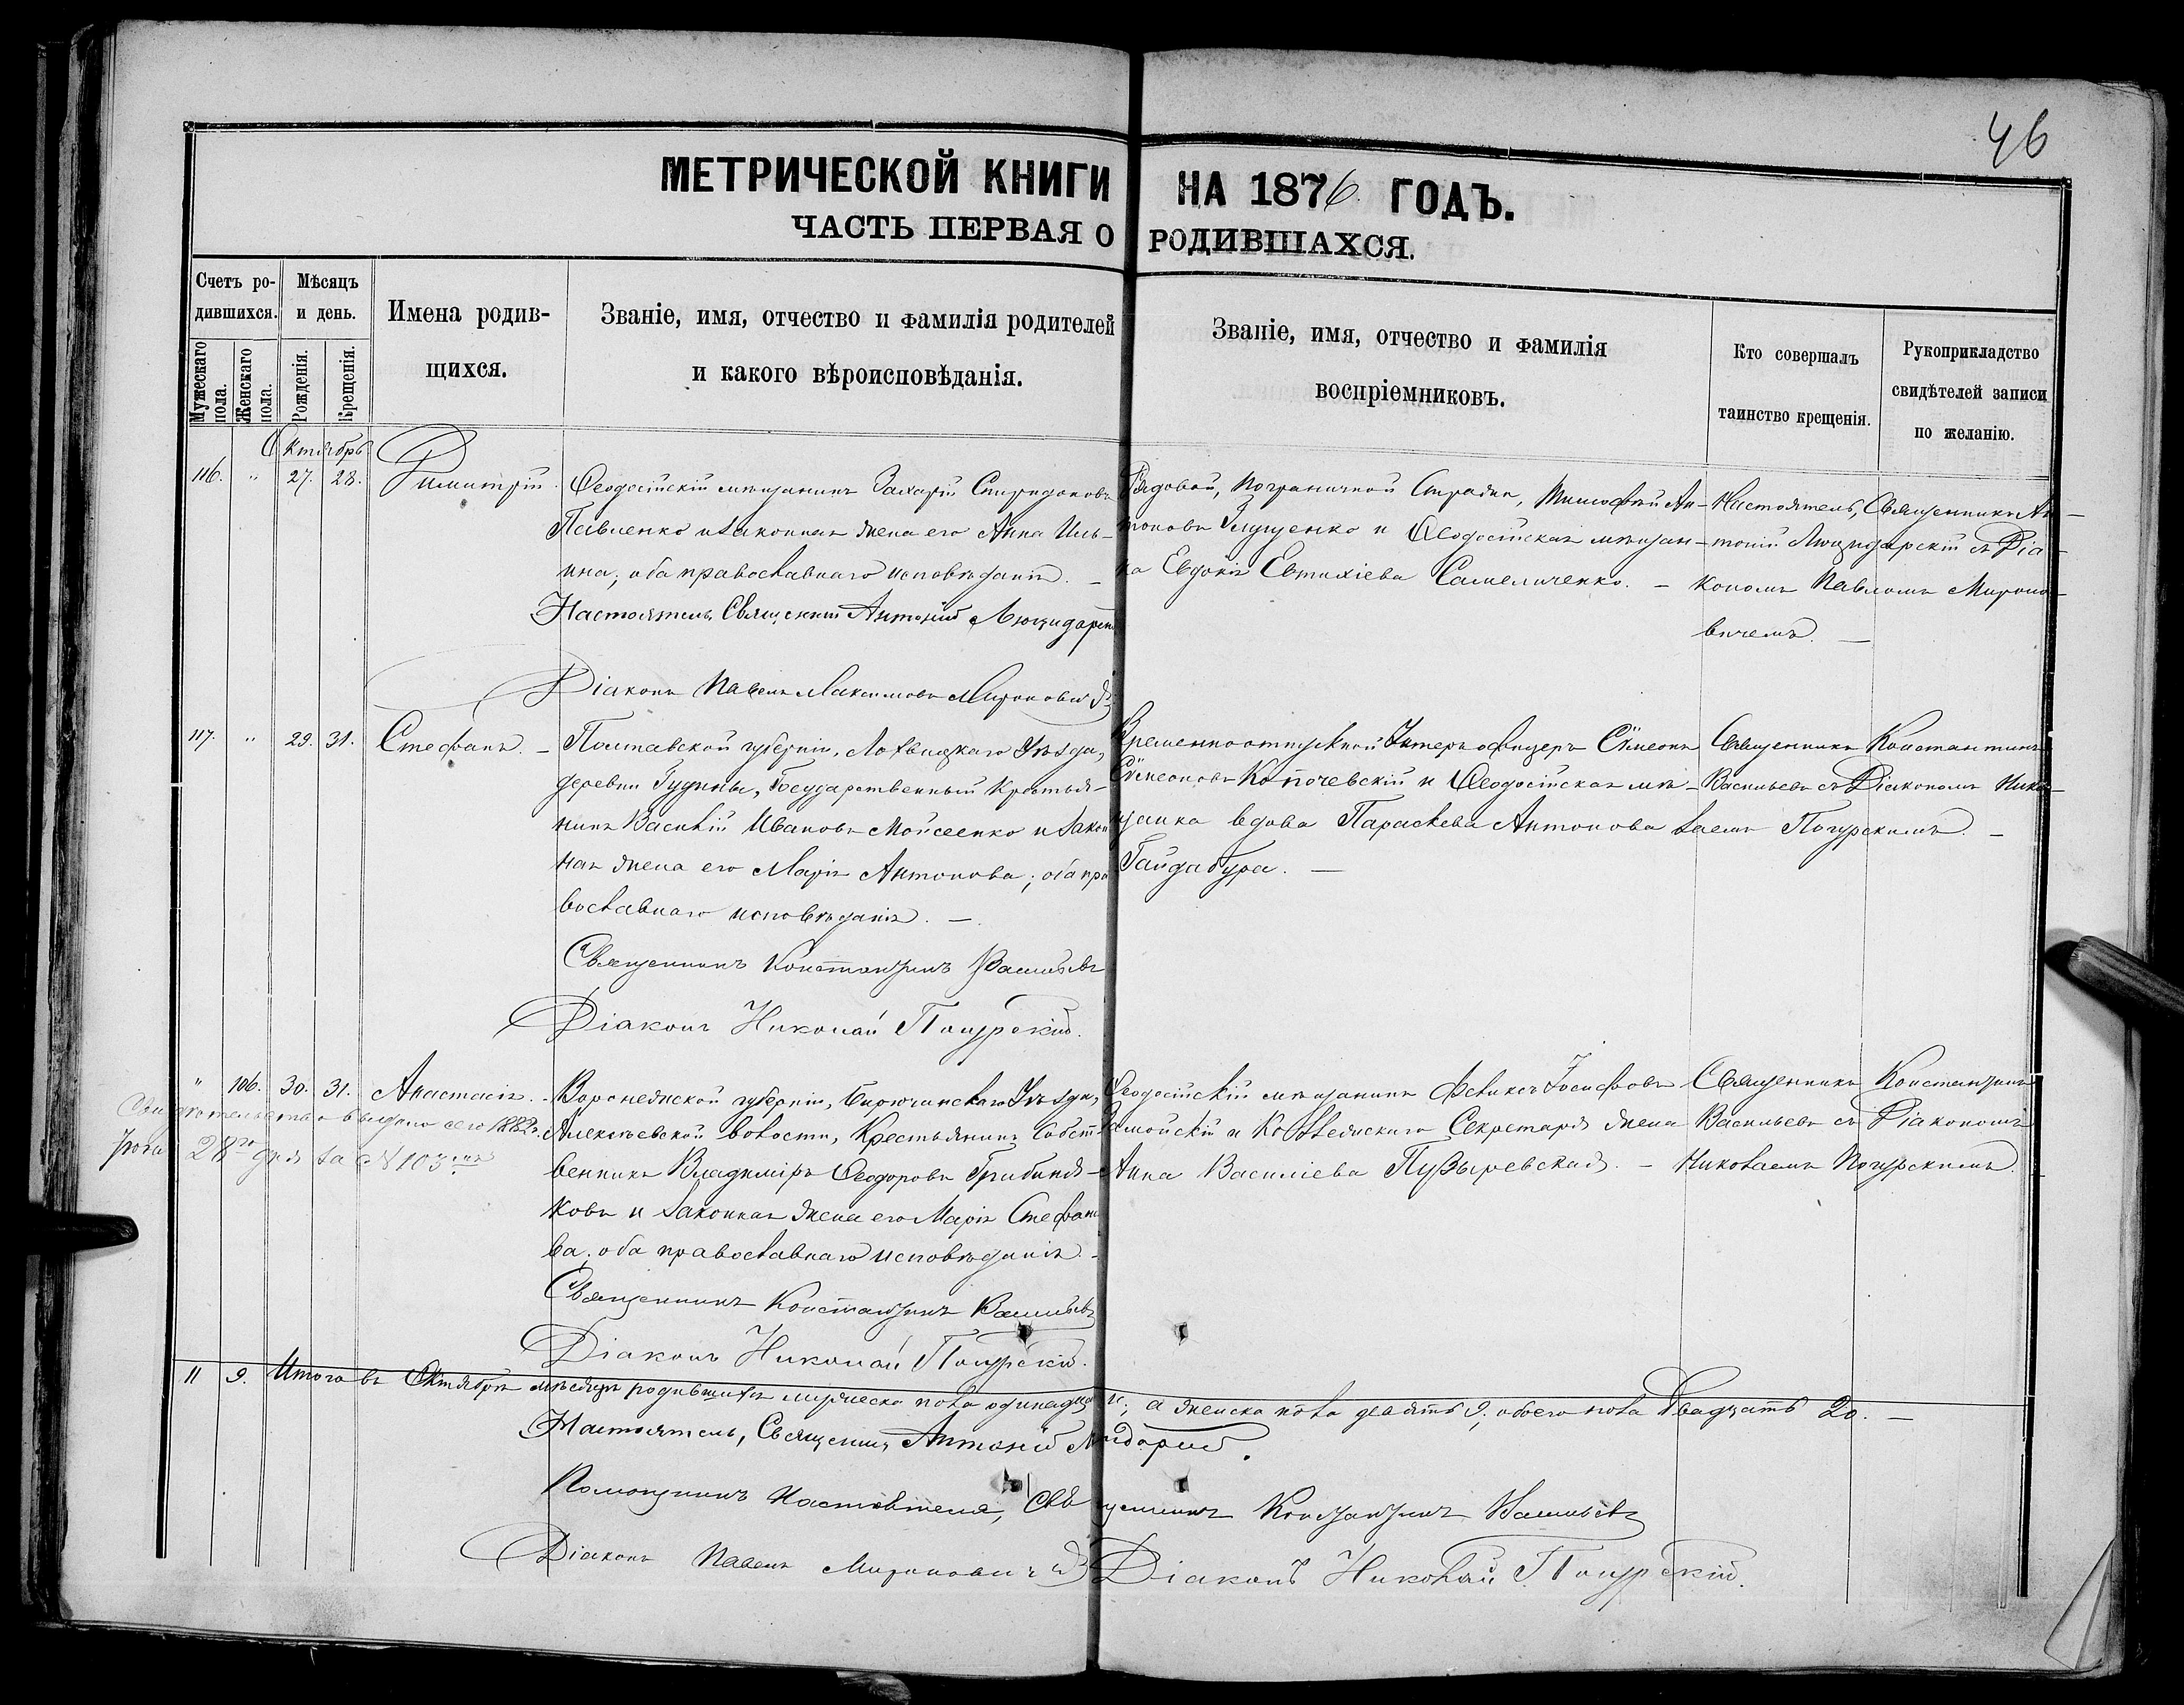 46
МЕТРИЧЕСКОЙ КНИГИ НА 1876 ГОДЪ.
ЧАСТЬ ПЕРВАЯ О РОДИВШАХСЯ.
Счетъ родившихся.
Мужескаго пола.
Женскаго пола.
Мѣсяцъ и день.
Рожденія.
Крещенія.
Имена родив-
щихся.
Званіе, имя, отчество и фамилія родителей
и какого вѣроисповѣданія.
Званіе, имя, отчество и фамилія
воспріемниковъ.
Кто совершалъ
таинство крещенія.
Рукоприкладство
свидѣтелей записи
по желанію.
Октябрь
116. " 27. 28. Димитрій.
Ѳеодосійскій мѣщанинъ Захарій Спиридоновъ
Павленко и законная жена его Анна Иль-
ина; оба православнаго исповѣданія. –
Настоятель, Священникъ Антоній
Діаконъ Павелъ Максимовъ Мироновичъ
Рядовой, пограничной Стражи, Тимофѣй Ан-
тоновъ Глущенко и Ѳеодосійская мѣщан-
ка Евдокія Евтихіева –
Настоятель, Священникъ Ан-
тоній съ Діа-
кономъ Павломъ Мироно-
вичемъ. –
117. " 29. 31. Стефанъ. –
Полтавской губерніи, Лохвицкаго Уѣзда,
деревни Гудимы, Государственный Крестья-
нинъ Василій Ивановъ Мойсеенко и закон
ная жена его Марія Антонова; оба пра
вославнаго исповѣданія. –
Священникъ Константинъ Васильевъ
Діаконъ Николай Погурскій.
Временноотпускной Унтеръ офицеръ Сѵмеонъ
Сѵмеоновъ Копочевскій и Ѳеодосійская мѣ-
щанка вдова Параскева Антонова
Гайдабура. –
Священникъ Константинъ
Васильевъ съ Діакономъ Нико-
лаемъ Погурскимъ. –
" 106. 30. 31. Анастасія. –
Свидѣтельство выдано сего 1882
года 28го дня за № 103
Воронежской губерніи, Бирюченскаго Уѣзда,
Алексѣевской волости, Крестьянинъ Собст
венникъ Владиміръ Ѳеодоровъ
ковъ и законная жена его Марія Стефано
ва; оба православнаго исповѣданія. –
Священникъ Константинъ Васильевъ
Діаконъ Николай Погурскій.
Ѳеодосійскій мѣщанинъ Феликсъ Іосифовъ
Замойскій и Коллежскаго Секретаря жена
Анна Василіева Пузыревская. –
Священникъ Константинъ
Васильевъ съ Діакономъ
Николаемъ Погурскимъ.
11 9. Итого въ Октябрѣ мѣсяцѣ родившихся мужеска пола одинадцать, а женска пола девять 9; обоего пола двадцать 20. –
Настоятель, Священникъ Антоній
Помощникъ Настоятеля, Священникъ Константинъ Васильевъ
Діаконъ Павелъ Мироновичъ
Діаконъ Николай Погурскій.